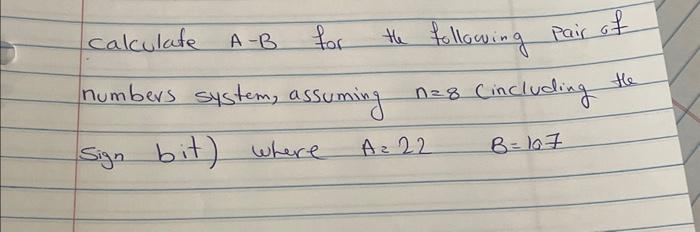 calculate A-B for the following pair of
numbers system, assuming n=8 (including the
sign bit) where A=22 B=107